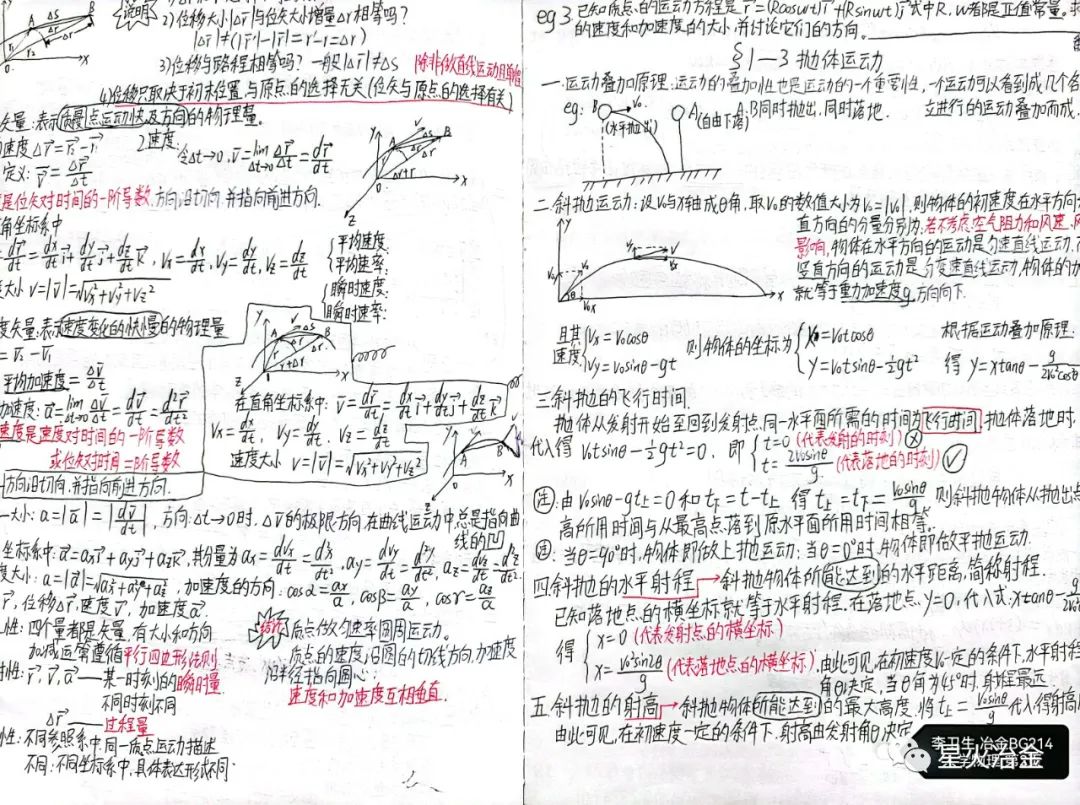 2)位移大小|Δr⃗|与位矢大小增量Δr相等吗?
|Δr⃗|≠(|r⃗'|-|r⃗|=r'-r=Δr)
3)位移与路程相等吗? 一般|Δr⃗|≠Δs
4)位移只取决于初末位置,与原点的选择无关(位矢与原点的选择有关)
矢量:表示质点运动快慢及方向的物理量。
速度Δr⃗=r⃗₂-r⃗₁
定义:v̅=Δr⃗/Δt
2速度:
令Δt→0, v⃗=lim Δt→0 Δr⃗/Δt=dr⃗/dt
是位矢对时间的一阶导数,方向沿切向,并指向前进方向.
角坐标系中
=dr⃗/dt=dx/dt i⃗+dy/dt j⃗+dz/dt k⃗, vx=dx/dt, vy=dy/dt, vz=dz/dt
大小 v=|v⃗|=√(vx²+vy²+vz²)
平均速度:
平均速率:
瞬时速度:
瞬时速率:
度矢量:表示速度变化的快慢的物理量
=v⃗₂-v⃗₁
平均加速度=Δv⃗/Δt
加速度:a⃗=lim Δt→0 Δv⃗/Δt=dv⃗/dt=d²r⃗/dt²
速度是速度对时间的一阶导数
或位矢对时间二阶导数
方向沿切向,并指向前进方向.
在直角坐标系中: v⃗=dr⃗/dt=dx/dt i⃗+dy/dt j⃗+dz/dt k⃗
vx=dx/dt, vy=dy/dt, vz=dz/dt
速度大小 v=|v⃗|=√(vx²+vy²+vz²)
大小:a=|a⃗|=|dv⃗/dt|, 方向:Δt→0时,Δv⃗的极限方向,在曲线运动中,总是指向曲
线的凹
坐标系中:a⃗=axi⃗+ayj⃗+azk⃗,其分量为ax=dvx/dt=d²x/dt², ay=dvy/dt=d²y/dt², az=dvz/dt=d²z/dt²
度大小:a=|a⃗|=√(ax²+ay²+az²), 加速度的方向:cosα=ax/a, cosβ=ay/a, cosγ=az/a
r⃗,位移Δr⃗,速度v⃗,加速度a⃗.
性:四个量都是矢量,有大小和方向
加减运算遵循平行四边形法则
r⃗,v⃗,a⃗—某一时刻的瞬时量
不同时刻不同
Δr⃗—过程量
性:不同参照系中同一质点运动描述
不同:不同坐标系中,具体表达形式不同.
结论
质点做匀速率圆周运动。
质点的速度沿圆的切线方向,加速度
沿半径指向圆心;
速度和加速度互相垂直.
eg3 已知质点的运动方程是r⃗=(Rcosωt)i⃗+(Rsinωt)j⃗式中R,ω都是正值常量。求
的速度和加速度的大小,并讨论它们的方向。
§1-3 抛体运动
一.运动叠加原理:运动的叠加性也是运动的一个重要性,一个运动可以看到成几个各
eg: B v₀ (水平抛出) A (自由下落) A,B同时抛出,同时落地. 立进行的运动叠加而成.
二.斜抛运动:设v₀与x轴成θ角,取v₀的数值大小为v₀=|v₀|,则物体的初速度在水平方向
直方向的分量分别为,若不考虑空气阻力和风速,
影响,物体在水平方向的运动是匀速直线运动,
竖直方向的运动是匀变速直线运动,物体的加
就等于重力加速度g,方向向下.
且其速度{vx=v₀cosθ
vy=v₀sinθ-gt
则物体的坐标为{x=v₀tcosθ
y=v₀tsinθ-½gt²
根据运动叠加原理:
得 y=xtanθ-
三.斜抛的飞行时间.
抛体从发射开始至回到发射点同一水平面所需的时间为飞行时间,抛体落地时,
代入得 v₀tsinθ-½gt²=0, 即{t=0(代表发射的时刻)
t=2v₀sinθ/g (代表落地的时刻)
注:由v₀sinθ-gt上=0和t下=t-t上 得t上=t下=v₀sinθ/g 则斜抛物体从抛出点
高所用时间与从最高点落到原水平面所用时间相等.
注:当θ=90°时,物体即做上抛运动;当θ=0°时,物体即做平抛运动.
四.斜抛的水平射程→斜抛物体所能达到的水平距离,简称射程.
已知落地点的横坐标就等于水平射程,在落地点y=0,代入式:xtanθ-
得{x=0(代表发射点的横坐标)
x=v₀²sin2θ/g(代表落地点的横坐标) 由此可见,在初速度v₀一定的条件下,水平射程
角θ决定,当θ角为45°时,射程最远.
五.斜抛的射高→斜抛物体所能达到的最大高度,将t上=v₀sinθ/g代入得射高
由此可见,在初速度一定的条件下,射高由发射角θ决定
李卫生 冶金BG214
星火冶金